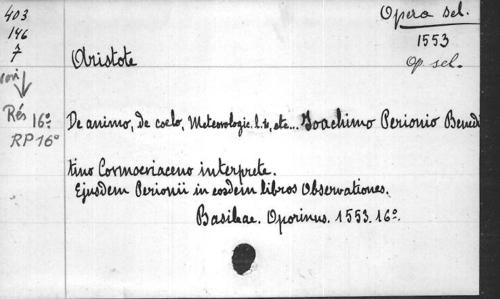 403
146
7
Opera sel.
1553
Op. sel.
Aristote
Rés 16º
RP 16º
De animo, de coelo, Meteorologic. l. v, etc... Joachimo Perionio Bened
tino Cormoeriaceno interprete.
Ejusdem Perionii in eosdem libros Observationes.
Basileae. Oporinus. 1553. 16º.